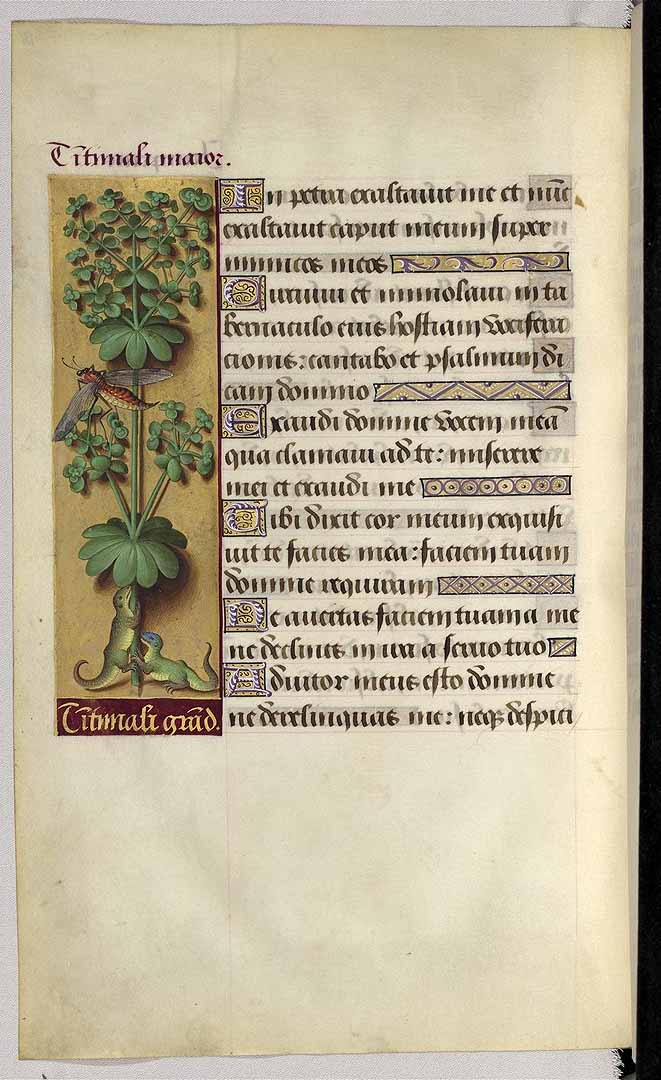 Titimali maior.
In petra exaltavit me et nūc
exaltavit caput meum super
inimicos meos
Circuivi et immolavi in ta
bernaculo eius hostiam vocifera
cionis: cantabo et psalmum di
cam domino
Exaudi domine vocem meā
qua clamavi ad te: miserere
mei et exaudi me
Tibi dixit cor meum exquisi
vit te facies mea: faciem tuam
domine requiram
Ne avertas faciem tuam a me
ne declines in ira a servo tuo
Adiutor meus esto domine
ne derelinquas me: neqꝫ despici
Titimali grād.